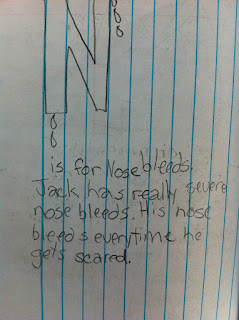 N
is for Nosebleeds.
Jack has really severe
nose bleeds. His nose
bleeds everytime he
gets scared.